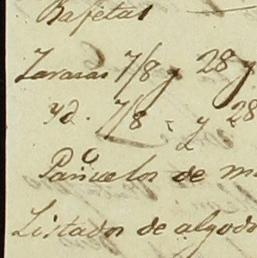 Bajetas
Zarasas 7/8 y 28 y
yd. 7/8 - y 28
Pañuelos de m
Listados de algod